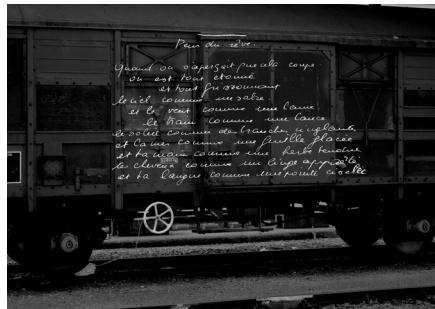 Peur du rêve.
Quand on s'aperçoit que la coupe
on est tout étonné
et tout frissonnant
le ciel comme un sabre
et le vent comme une lame
le train comme une lance
le soleil comme des tranches
et l'amer comme une feuille glacée
et ta main comme une herbe tendue
les cheveux comme un linge apprêté
et ta langue comme une pointe ciselée